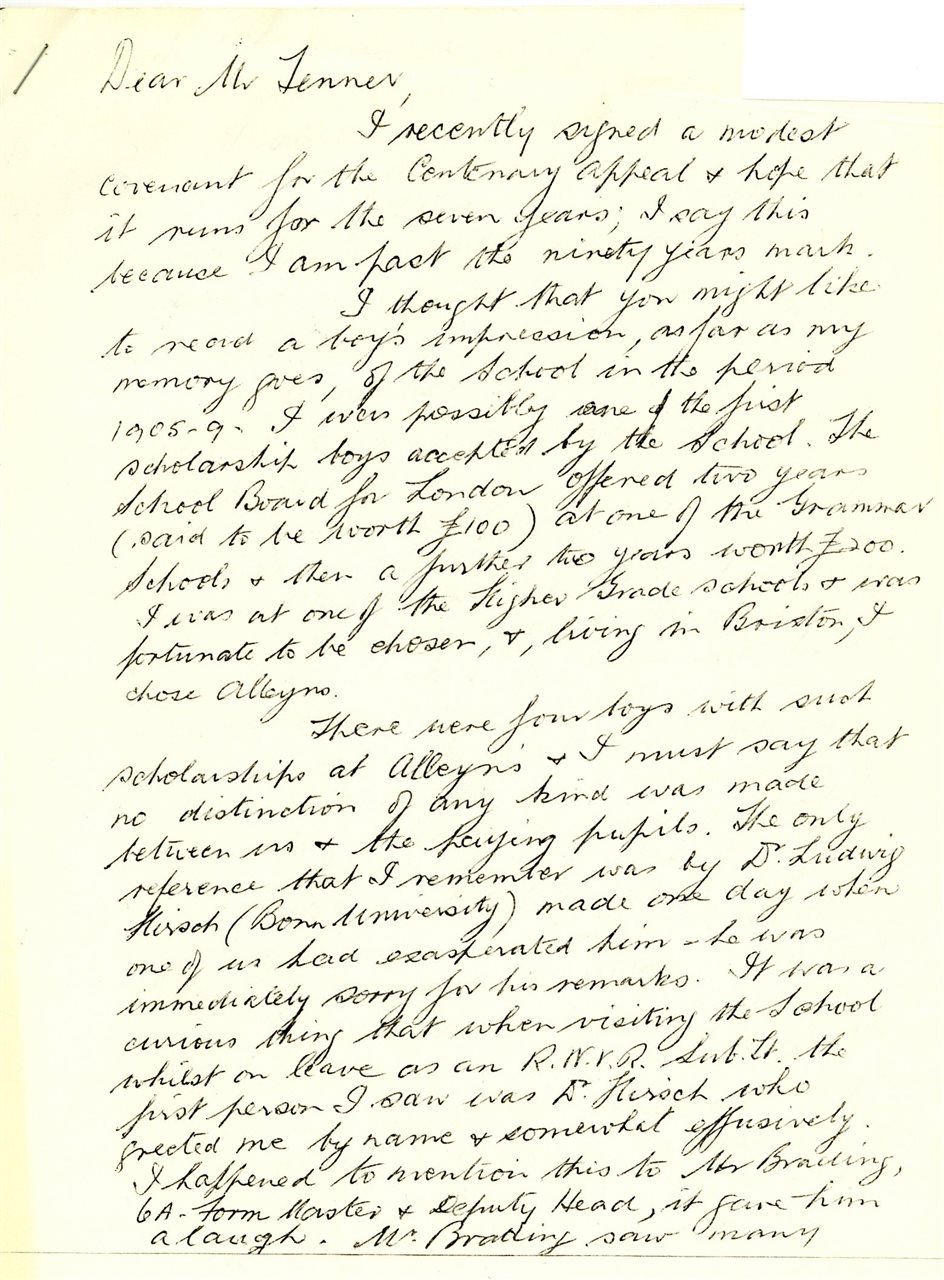 Dear Mr Fenner,
I recently signed a modest
covenant for the Centenary Appeal & hope that
it runs for the seven years; I say this
because I am past the ninety years mark.
I thought that you might like
to read a boy's impression, as far as my
memory goes, of the School in the period
1905-9. I was possibly one of the first
scholarship boys accepted by the School. The
School Board for London offered two years
(said to be worth £100) at one of the Grammar
Schools & then a further two years worth £200.
I was at one of the Higher Grade schools & was
fortunate to be chosen, &, living in Brixton, I
chose Alleyns.
There were four boys with such
scholarships at Alleyn's & I must say that
no distinction of any kind was made
between us & the paying pupils. The only
reference that I remember was by Dr. Ludwig
Hirsch (Bonn University) made one day when
one of us had exasperated him - he was
immediately sorry for his remarks. It was a
curious thing that when visiting the School
whilst on leave as an R.N.V.R. Sub. Lt. the
first person I saw was Dr. Hirsch who
greeted me by name & somewhat effusively.
I happened to mention this to Mr Brading,
6A - Form Master & Deputy Head, it gave him
a laugh. Mr. Brading saw many